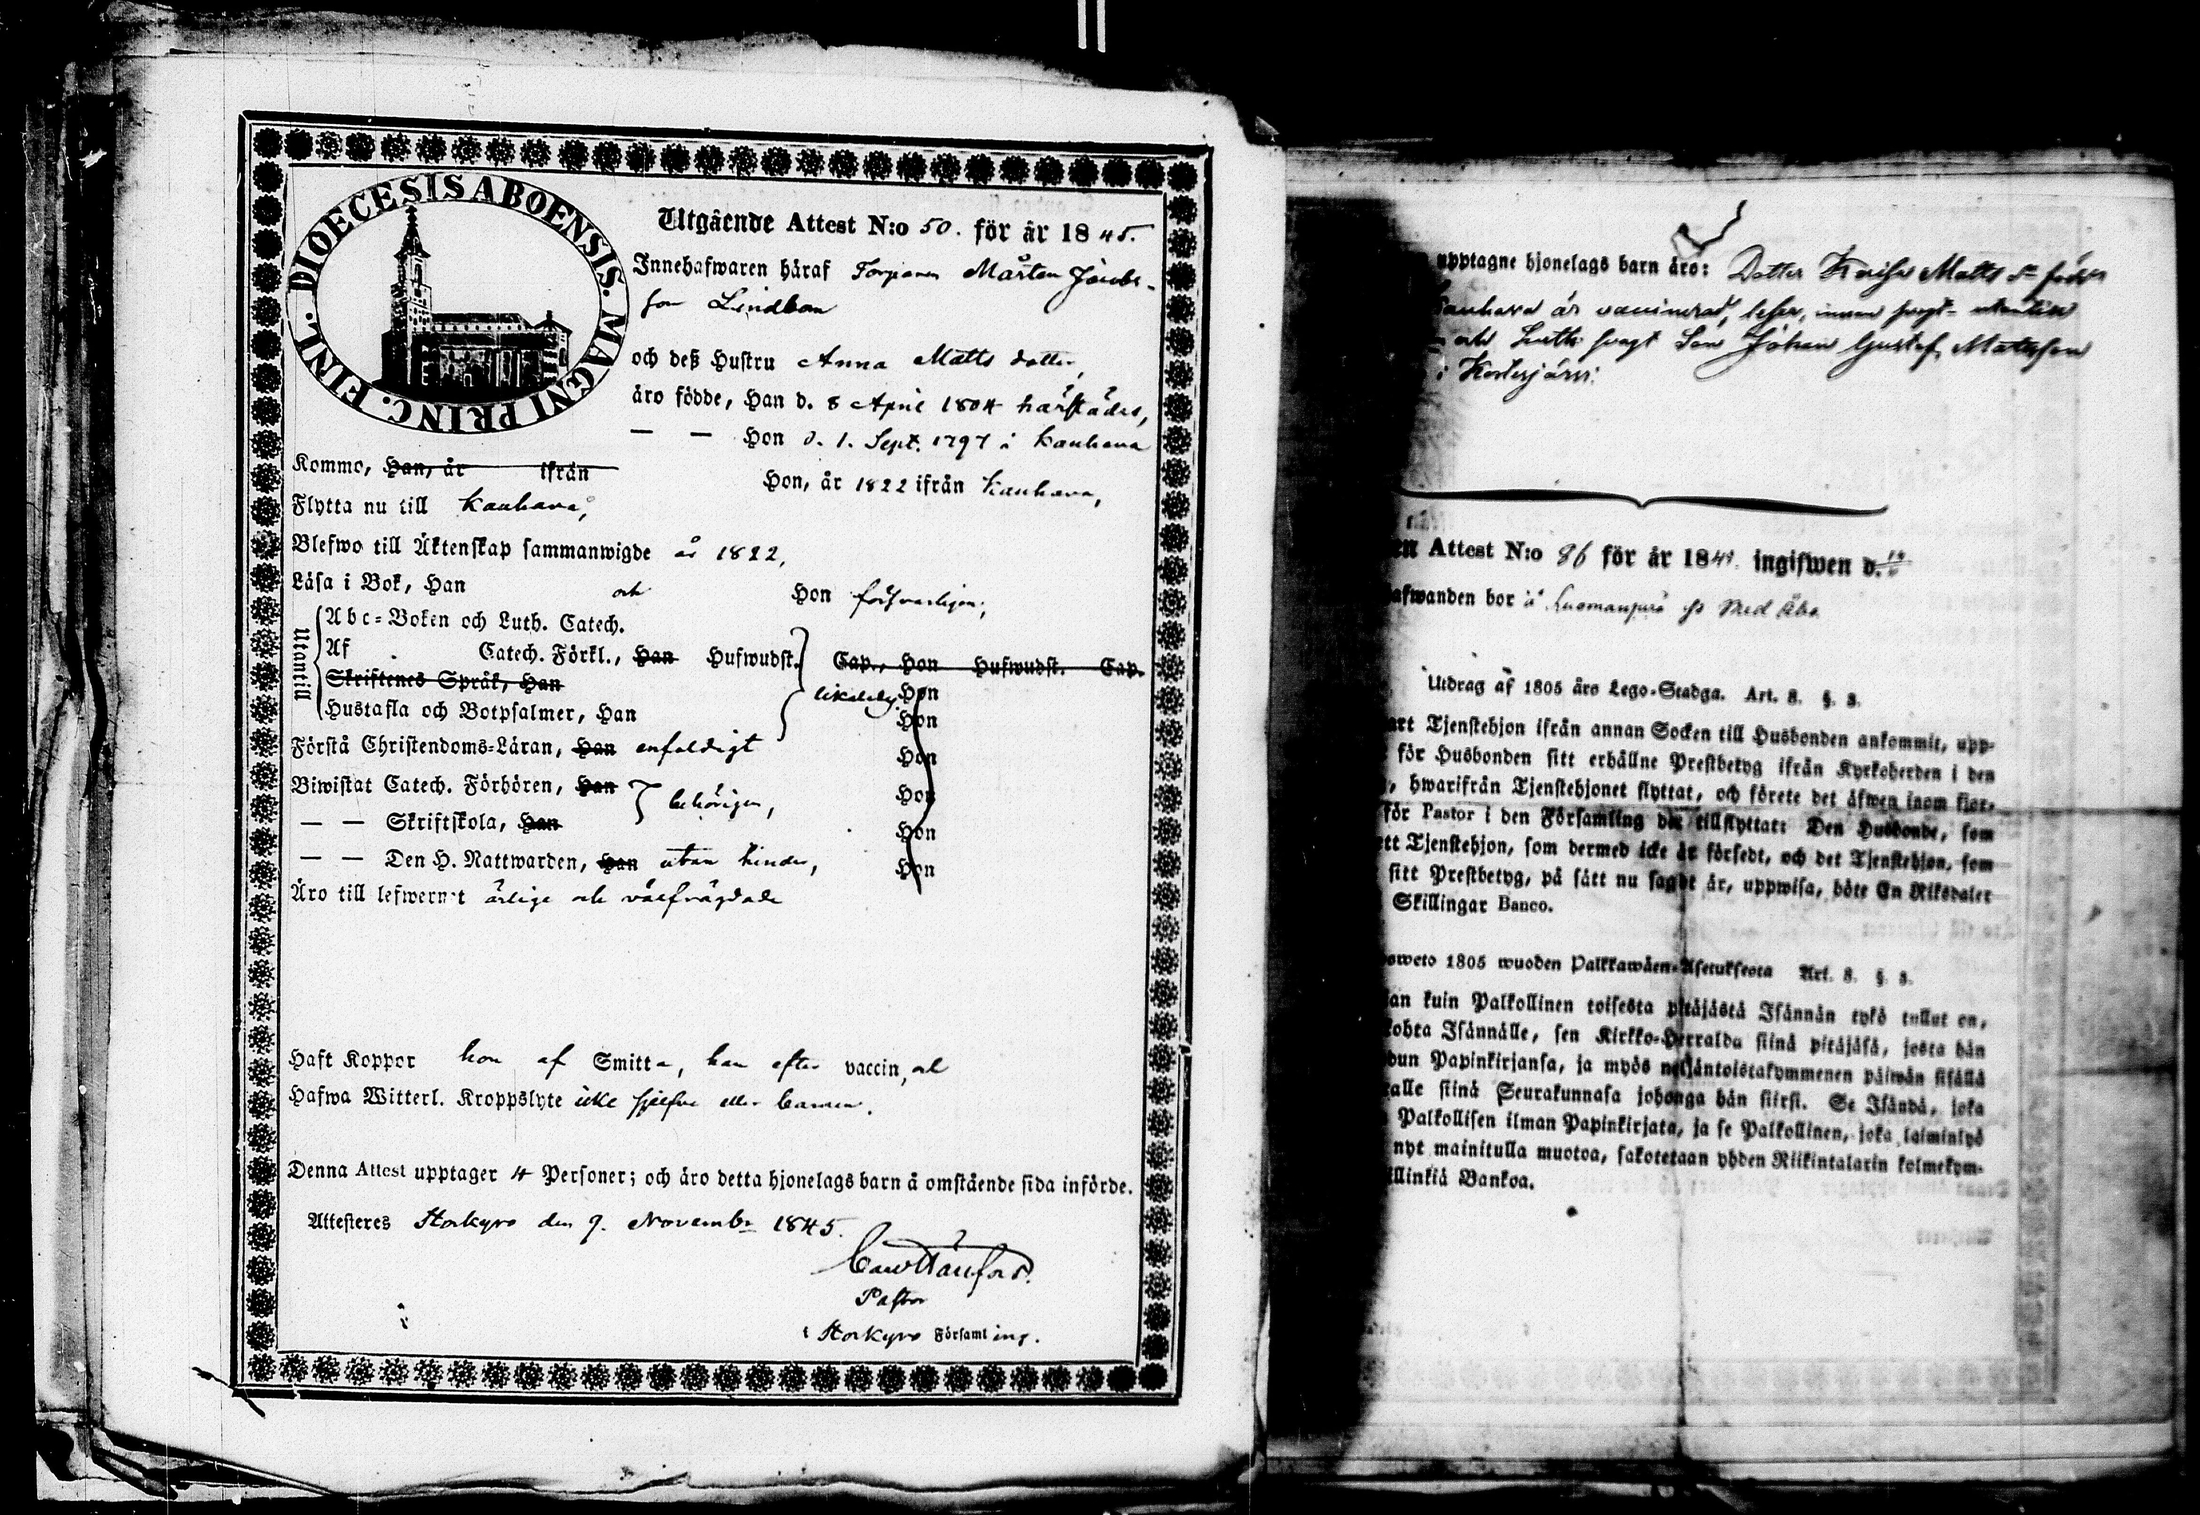 DIOECESIS ABOENSIS. MAGNI PRINC. FINL.
Utgående Attest N:o 50. för år 1845.
Innehafwaren häraf Torparen Mårten Jacobs-
son Lindbom
och deß Hustru Anna Matts dotter,
äro födde, Han d. 8 April 1804 härstädes,
— — Hon d. 1. Sept. 1797 i Kauhava
Kommo, Han, år ifrån Hon, år 1822 ifrån Kauhava,
Flytta nu till Kauhava,
Blefwo till Äktenskap sammanwigde år 1822,
Läsa i Bok, Han och Hon försvarligen;
Utantill
Abc-Boken och Luth. Catech.
Af Catech. Förkl., Han Hufwudst. Cap., Hon Hufwudst. Cap.
Skriftenes Språk, Han likaledes Hon
Hustafla och Botpsalmer, Han Hon
Förstå Christendoms-Läran, Han enfaldigt Hon
Biwistat Catech. Förhören, Han behörigen, Hon
— — Skriftskola, Han Hon
— — Den H. Nattwarden, Han utan hinder, Hon
Äro till lefwernet ärlige och välfrägdade
Haft Koppor hon af Smitta, han efter vaccin, och
Hafwa Witterl. Kroppslyte icke sjelfve eller barnen.
Denna Attest upptager 4 Personer; och äro detta hjonelags barn å omstående sida införde.
Attesteres Storkyro den 9. November 1845.
Pastor
i Storkyro Församling.
upptagne hjonelags barn äro: Dotter Kaisa Matts dr född
Kauhava är vaccinerad, läser, innan
och Luth. Son Johan Gustaf Mattsson
i Kortesjärvi.
Attest N:o 86 för år 184 ingifwen d.
afwanden bor å
Utdrag af 1805 års Lego-Stadga. Art. 8. §. 3.
art Tjenstehjon ifrån annan Socken till Husbonden ankommit, upp-
för Husbonden sitt erhållne Prestbetyg ifrån Kyrkoherden i den
, hwarifrån Tjenstehjonet flyttat, och förete det äfwen inom fjor-
för Pastor i den Församling det tillflyttat: Den Husbonde, som
ett Tjenstehjon, som dermed icke är försedt, och det Tjenstehjon, som
sitt Prestbetyg, på sätt nu sagdt är, uppwisa, böte En Riksdaler
Skillingar Banco.
osweto 1805 wuoden Palkkawäen-Asetuksesta Art. 8. §. 3.
an kuin Palkollinen toisesta pitäjästä Isännän tykö tullut on,
kohta Isännälle, sen Kirkko-Herralda siinä pitäjäsä, josta hän
dun Papinkirjansa, ja myös neljäntoistakymmenen päiwän sisällä
alle siinä Seurakunnasa johonga hän siirsi. Se Isändä, joka
Palkollisen ilman Papinkirjata, ja se Palkollinen, joka laiminlyö
nyt mainitulla muotoa, sakotetaan yhden Riikintalarin kolmekym-
illinkiä Bankoa.